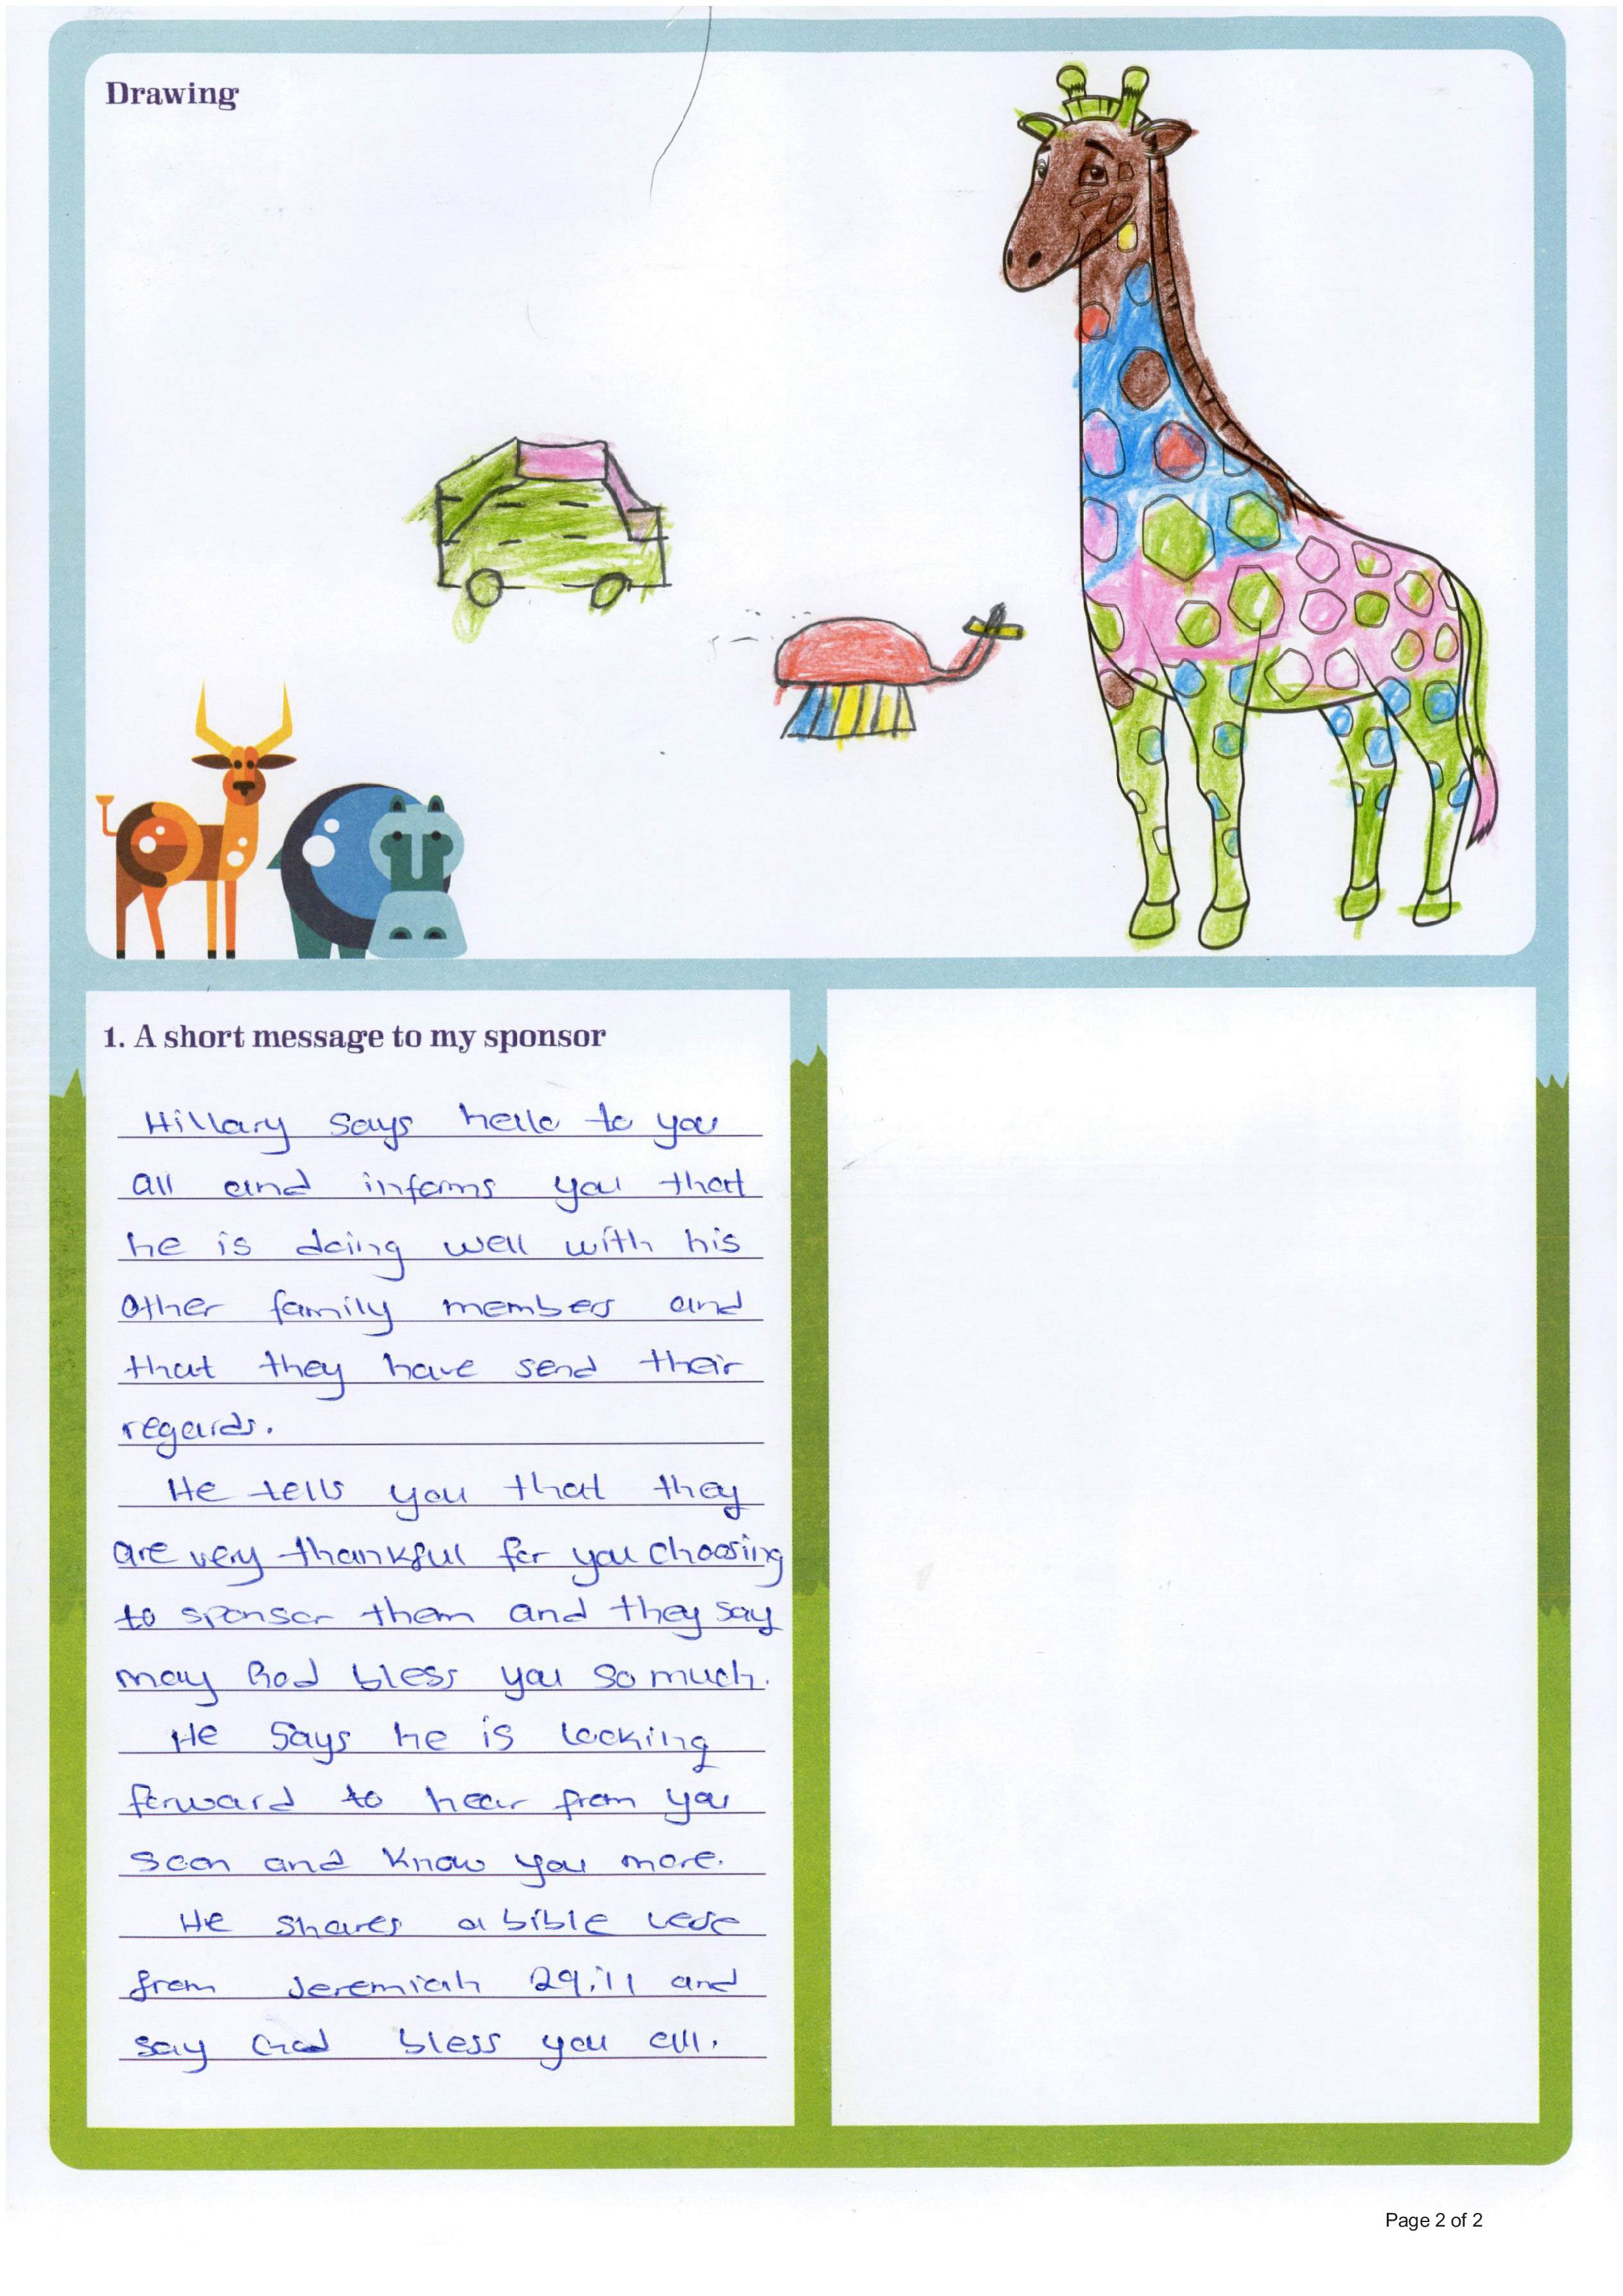 Drawing
1. A short message to my sponsor
Hillary says hello to you
all and informs you that
he is doing well with his
other family members and
that they have send their
regards.
He tells you that they
are very thankful for you choosing
to sponsor them and they say
may God bless you so much.
He says he is looking
forward to hear from you
soon and know you more.
He shares a bible verse
from Jeremiah 29:11 and
say God bless you all.
Page 2 of 2